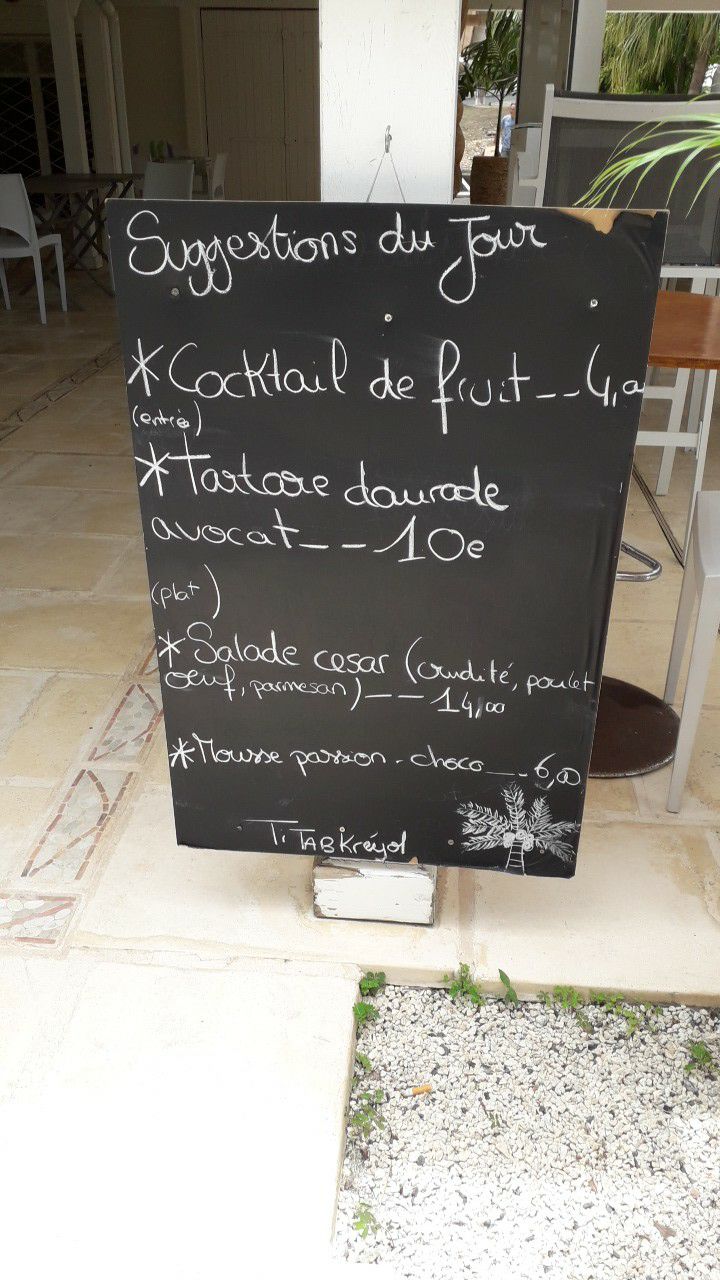 Suggestions du Jour
*Cocktail de fruit--4,
(entrée)
*Tartare daurade
avocat---10e
(plat)
*Salade cesar (crudité, poulet
oeuf, parmesan)---14,00
*Mousse passion-choco---6,00
Ti TABKréyol